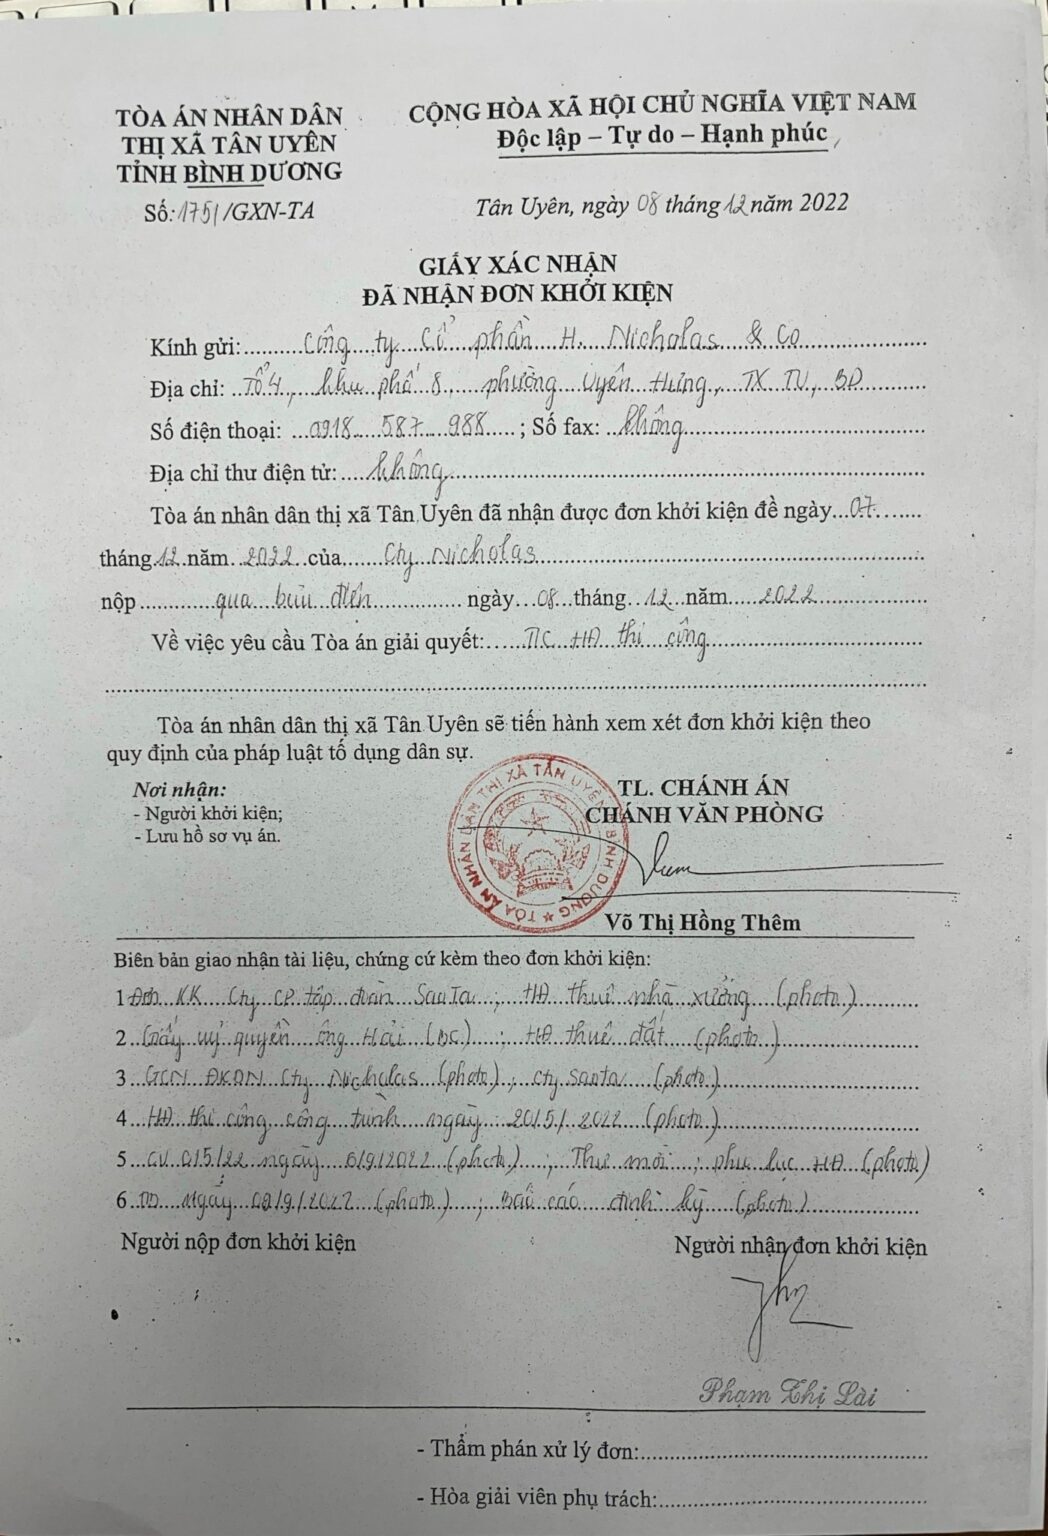 TÒA ÁN NHÂN DÂN
THỊ XÃ TÂN UYÊN
TỈNH BÌNH DƯƠNG
Số: 1751/GXN-TA
CỘNG HÒA XÃ HỘI CHỦ NGHĨA VIỆT NAM
Độc lập – Tự do – Hạnh phúc
Tân Uyên, ngày 08 tháng 12 năm 2022
GIẤY XÁC NHẬN
ĐÃ NHẬN ĐƠN KHỞI KIỆN
Kính gửi: Công ty Cổ phần H. Nicholas & Co
Địa chỉ: Tổ 4, khu phố 8, phường Uyên Hưng, TX TU, BD
Số điện thoại: 0918 587 988 ; Số fax: không
Địa chỉ thư điện tử: không
Tòa án nhân dân thị xã Tân Uyên đã nhận được đơn khởi kiện đề ngày 07
tháng 12 năm 2022 của Cty Nicholas
nộp qua bưu điện ngày 08 tháng 12 năm 2022
Về việc yêu cầu Tòa án giải quyết: TC HĐ thi công
Tòa án nhân dân thị xã Tân Uyên sẽ tiến hành xem xét đơn khởi kiện theo
quy định của pháp luật tố dụng dân sự.
Nơi nhận:
- Người khởi kiện;
- Lưu hồ sơ vụ án.
TL. CHÁNH ÁN
CHÁNH VĂN PHÒNG
TÒA ÁN NHÂN DÂN THỊ XÃ TÂN UYÊN BÌNH DƯƠNG
Võ Thị Hồng Thêm
Biên bản giao nhận tài liệu, chứng cứ kèm theo đơn khởi kiện:
1 Đơn KK Cty CP tập đoàn SanTa ; HĐ thuê nhà xưởng (photo)
2 Giấy uỷ quyền ông Hải (BC) ; HĐ thuê đất (photo)
3 GCN ĐKDN Cty Nicholas (photo) ; cty Santa (photo)
4 HĐ thi công công trình ngày 20/5/2022 (photo)
5 CV 015/22 ngày 6/9/2022 (photo) ; Thư mời ; phụ lục HĐ (photo)
6 ngày 09/9/2022 (photo) ; Báo cáo định kỳ (photo)
Người nộp đơn khởi kiện
Người nhận đơn khởi kiện
Phạm Thị Lài
- Thẩm phán xử lý đơn:
- Hòa giải viên phụ trách: